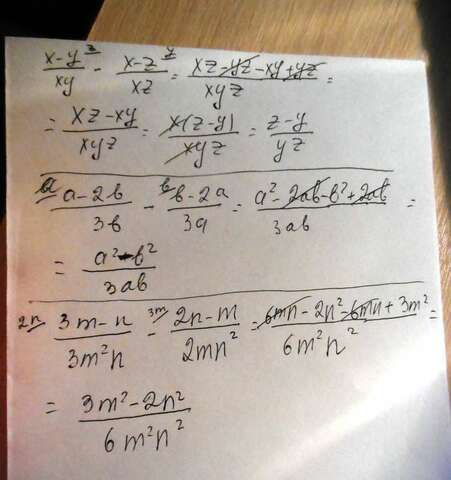 x-y/xy ^z - x-z/xz ^y = xz-yz-xy+yz/xyz =
= xz-xy/xyz = x(z-y)/xyz = z-y/yz
a a-2b/3b - b b-2a/3a = a²-2ab-b²+2ab/3ab =
= a²-b²/3ab
2n 3m-n/3m²n - 3m 2n-m/2mn² = 6mn-2n²-6mn+3m²/6m²n² =
= 3m²-2n²/6m²n²